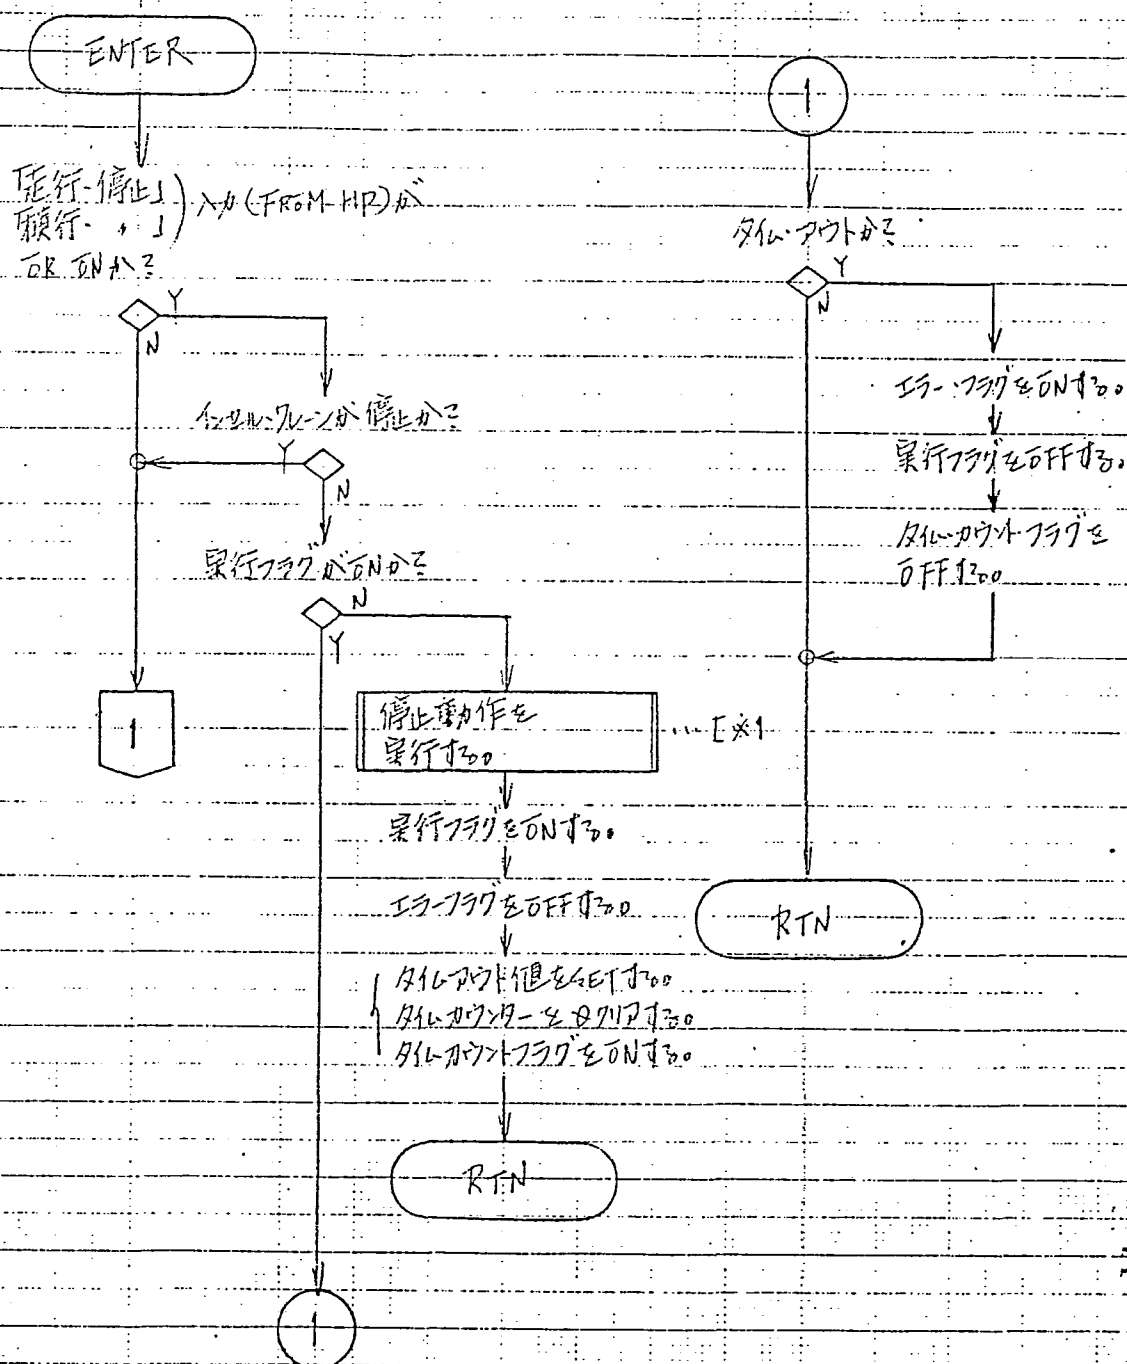 ENTER
「走行-停止」
「横行- 〃 」 入力(FROM-HR)が
OR ONか?
Y
N
インセル・クレーンが停止か?
Y
N
実行フラグがONか?
N
Y
1
停止動作を
実行する。
…[※1
実行フラグをONする。
エラーフラグをOFFする。
タイムアウト値をSETする。
タイムカウンターを0クリアする。
タイムカウントフラグをONする。
RTN
1
1
タイム・アウトか?
Y
N
エラー・フラグをONする。
実行フラグをOFFする。
タイム・カウント・フラグを
OFFする。
RTN